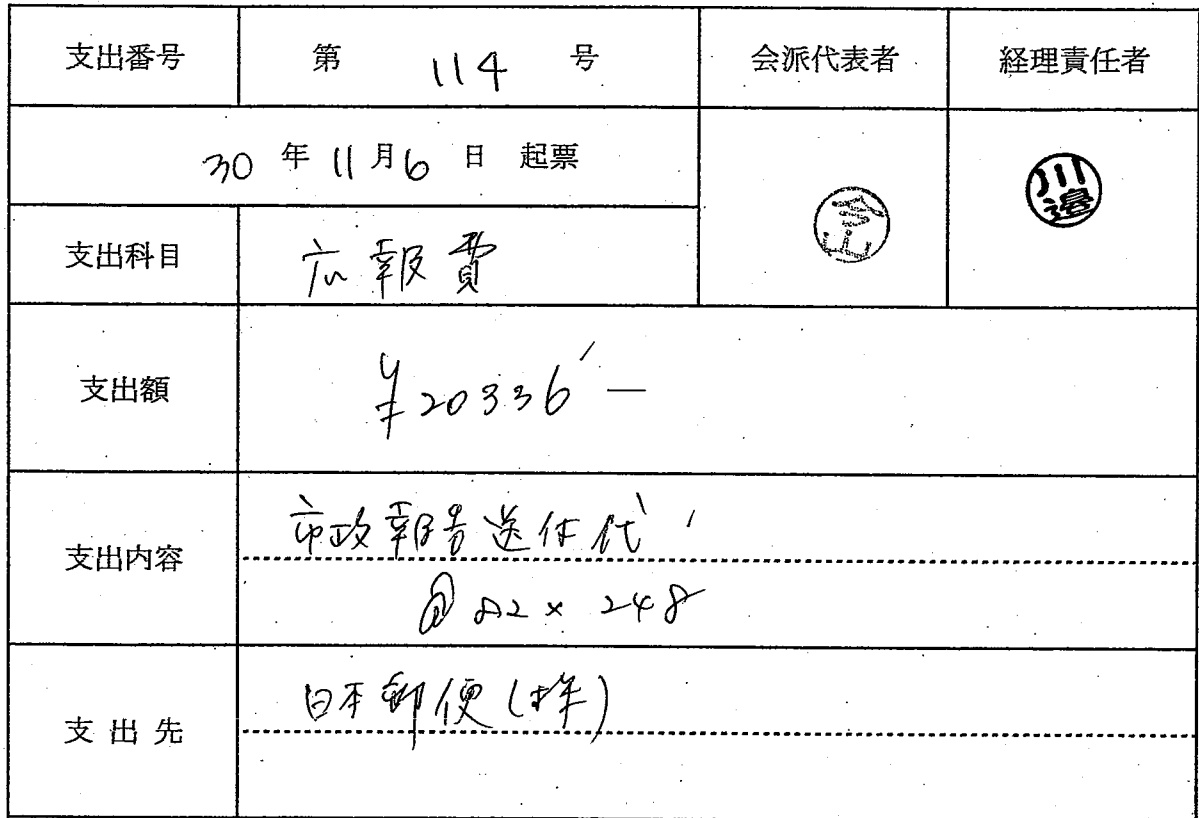 支出番号 第 114 号 会派代表者 経理責任者
30 年 11 月 6 日 起票
今山 川邊
支出科目 広報費
支出額 ¥20336-
支出内容 市政報告送付代
@82×248
支出先 日本郵便(株)